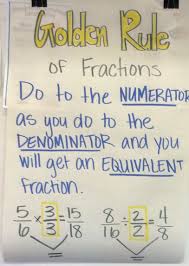 Golden Rule
of Fractions
Do to the NUMERATOR
as you do to the
DENOMINATOR and you
will get an EQUIVALENT
fraction.
5/6 × 3/3 = 15/18 8/16 ÷ 2/2 = 4/8